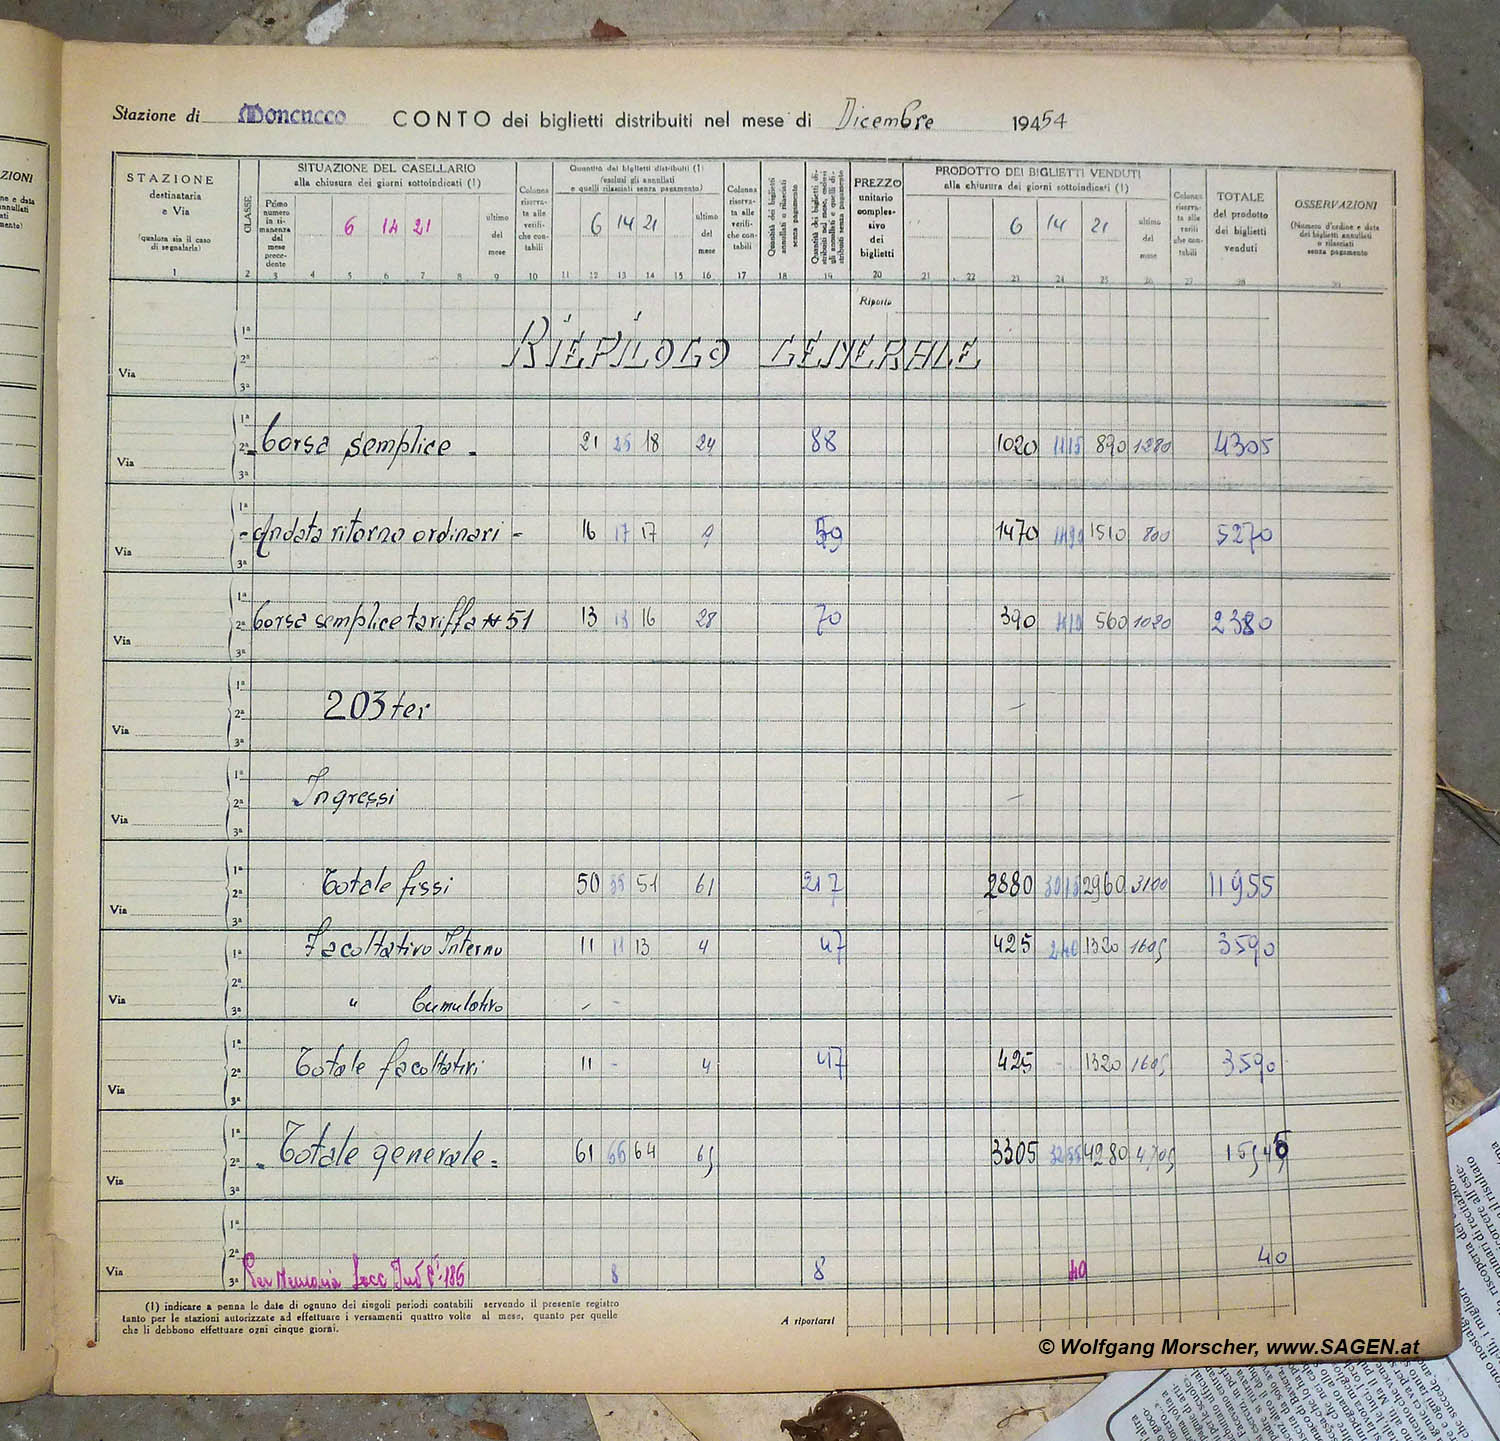 Stazione di Moncucco CONTO dei biglietti distribuiti nel mese di Dicembre 19454
STAZIONE destinataria e Via (qualora sia il caso di segnalarla) 1
CLASSE 2
SITUAZIONE DEL CASELLARIO
alla chiusura dei giorni sottoindicati (1)
Primo numero in rimanenza del mese precedente 3
6 14 21
ultimo del mese
4 5 6 7 8 9
Colonna riservata alle verifiche contabili 10
Quantità dei biglietti distribuiti (1)
(esclusi gli annullati e quelli rilasciati senza pagamento)
6 14 21
ultimo del mese
11 12 13 14 15 16
Colonna riservata alle verifiche contabili 17
Quantità dei biglietti annullati o rilasciati senza pagamento 18
19
PREZZO unitario complessivo dei biglietti 20
PRODOTTO DEI BIGLIETTI VENDUTI
alla chiusura dei giorni sottoindicati (1)
6 14 21
ultimo del mese
21 22 23 24 25 26
Colonna riservata alle verifiche contabili 27
TOTALE del prodotto dei biglietti venduti 28
OSSERVAZIONI
(Numero d'ordine e data dei biglietti annullati o rilasciati senza pagamento
Riporto
1ª
RIEPILOGO GENERALE
2ª
Via
3ª
1ª
2ª Corsa semplice 21 25 18 24 88 1020 1115 890 1280 4305
Via
3ª
1ª
Andata ritorno ordinari 16 17 17 9 59 1470 1490 1510 800 5270
Via
3ª
1ª
2ª Corsa semplice tariffa N 51 13 13 16 28 70 390 410 560 1020 2380
Via
3ª
1ª
2ª 203 ter –
Via
3ª
1ª
2ª Ingressi –
Via
3ª
1ª
2ª Totale fissi 50 55 51 61 217 2880 3015 2960 3100 11955
Via
3ª
1ª Facoltativo Interno 11 11 13 4 47 425 240 1320 1605 3590
2ª
Via
3ª " Cumulativo - -
1ª
2ª Totale facoltativi 11 - 4 47 425 - 1320 1605 3590
Via
3ª
1ª
2ª Totale generale 61 66 64 65 3305 3255 4280 4705 15545
Via
3ª
1ª
2ª 40
Via
3ª Per Memoria 186 8 8 40
(1) indicare a penna le date di ognuno dei singoli periodi contabili servendo il presente registro
tanto per le stazioni autorizzate ad effettuare i versamenti quattro volte al mese, quanto per quelle
che li debbono effettuare ogni cinque giorni.
A riportarsi
© Wolfgang Morscher, www.SAGEN.at